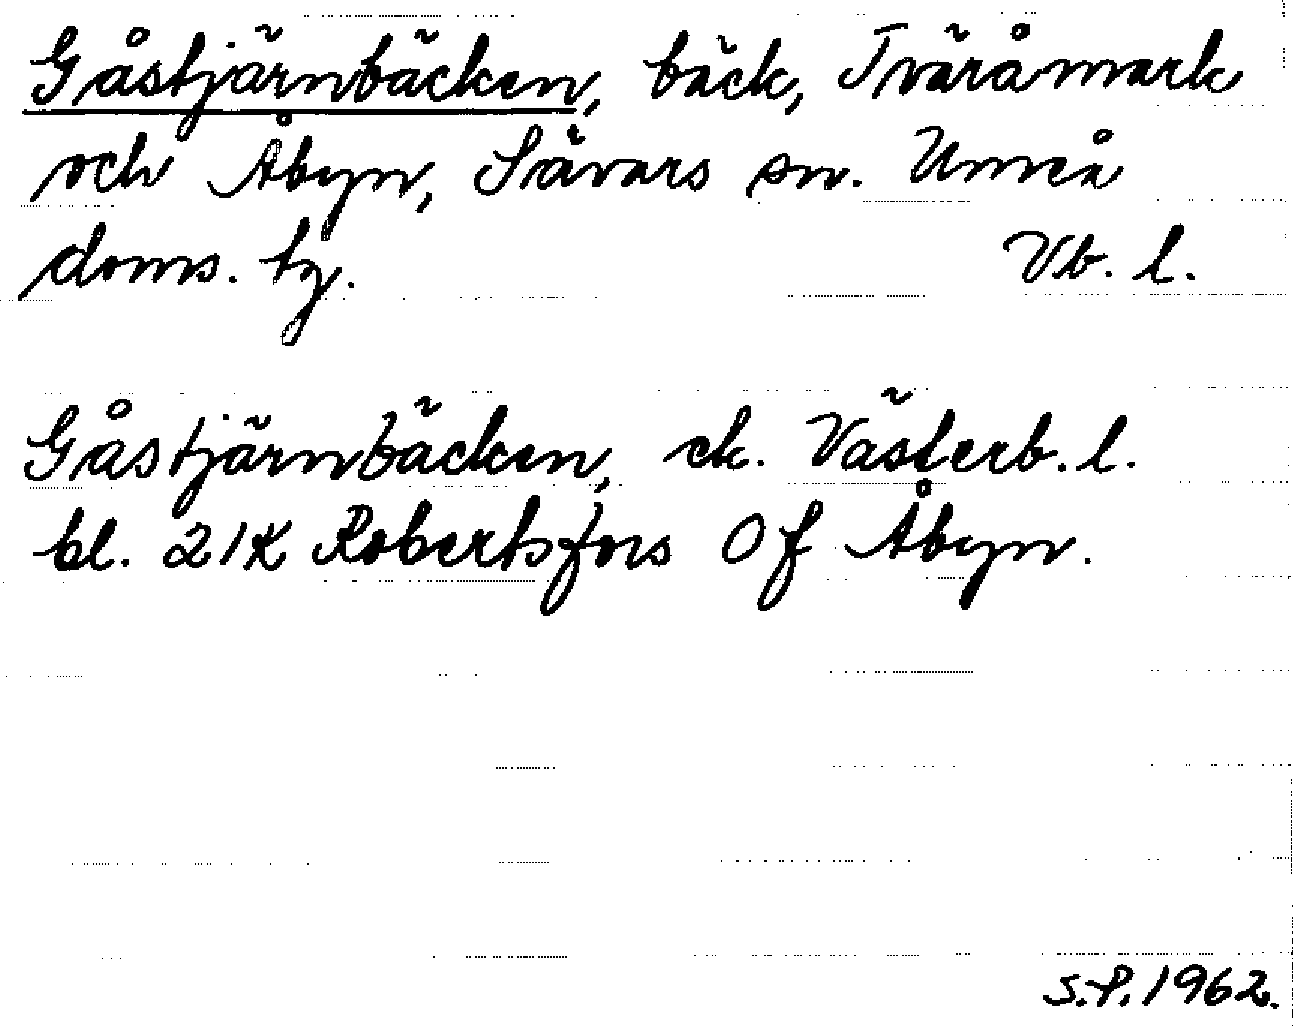 Gåstjärnbäcken, bäck, Tväråmark
och Åbyn, Sävars sn. Umeå
doms. tg. Vb. l.
Gåstjärnbäcken, ek. Västerb. l.
bl. 21K Robertsfors 0f Åbyn.
S.P. 1962.